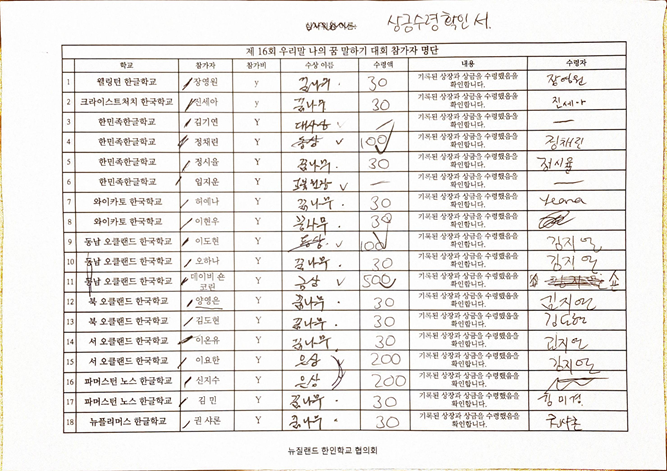 상금수령확인서.
제 16회 우리말 나의 꿈 말하기 대회 참가자 명단
학교 참가자 참가비 수상 이름 수령액 내용 수령자
1 웰링턴 한글학교 장영원 y 꿈나무. 30 기록된 상장과 상금을 수령했음을 확인합니다. 장영원
2 크라이스트처치 한국학교 진세아 y 꿈나무. 30 기록된 상장과 상금을 수령했음을 확인합니다. 진세아
3 한민족한글학교 김기연 Y 대상 v — 기록된 상장과 상금을 수령했음을 확인합니다. —
4 한민족한글학교 정채린 Y 동상 v 100 기록된 상장과 상금을 수령했음을 확인합니다. 정채린
5 한민족한글학교 정시율 Y 꿈나무. 30 기록된 상장과 상금을 수령했음을 확인합니다. 정시율
6 한민족한글학교 임지운 Y v — 기록된 상장과 상금을 수령했음을 확인합니다. —
7 와이카토 한국학교 허예나 Y 꿈나무. 30 기록된 상장과 상금을 수령했음을 확인합니다. Yeana
8 와이카토 한국학교 이현우 Y 꿈나무. 30 기록된 상장과 상금을 수령했음을 확인합니다.
9 동남 오클랜드 한국학교 이도현 Y 동상 v 100 기록된 상장과 상금을 수령했음을 확인합니다. 김지연
10 동남 오클랜드 한국학교 오하나 Y 꿈나무. 30 기록된 상장과 상금을 수령했음을 확인합니다. 김지연
11 동남 오클랜드 한국학교 데이비 숀 코린 Y 금상 v 500 기록된 상장과 상금을 수령했음을 확인합니다.
12 북 오클랜드 한국학교 양영은 Y 꿈나무. 30 기록된 상장과 상금을 수령했음을 확인합니다. 김지연
13 북 오클랜드 한국학교 김도현 Y 꿈나무. 30 기록된 상장과 상금을 수령했음을 확인합니다. 김도현
14 서 오클랜드 한국학교 이온유 Y 꿈나무. 30 기록된 상장과 상금을 수령했음을 확인합니다. 김지연
15 서 오클랜드 한국학교 이요한 Y 은상 200 기록된 상장과 상금을 수령했음을 확인합니다. 김지연
16 파머스턴 노스 한글학교 신지수 Y 은상 200 기록된 상장과 상금을 수령했음을 확인합니다.
17 파머스턴 노스 한글학교 김 민 Y 꿈나무. 30 기록된 상장과 상금을 수령했음을 확인합니다. 황미경
18 뉴플리머스 한국학교 권 샤론 Y 꿈나무. 30 기록된 상장과 상금을 수령했음을 확인합니다. 권샤론
뉴질랜드 한인학교 협의회